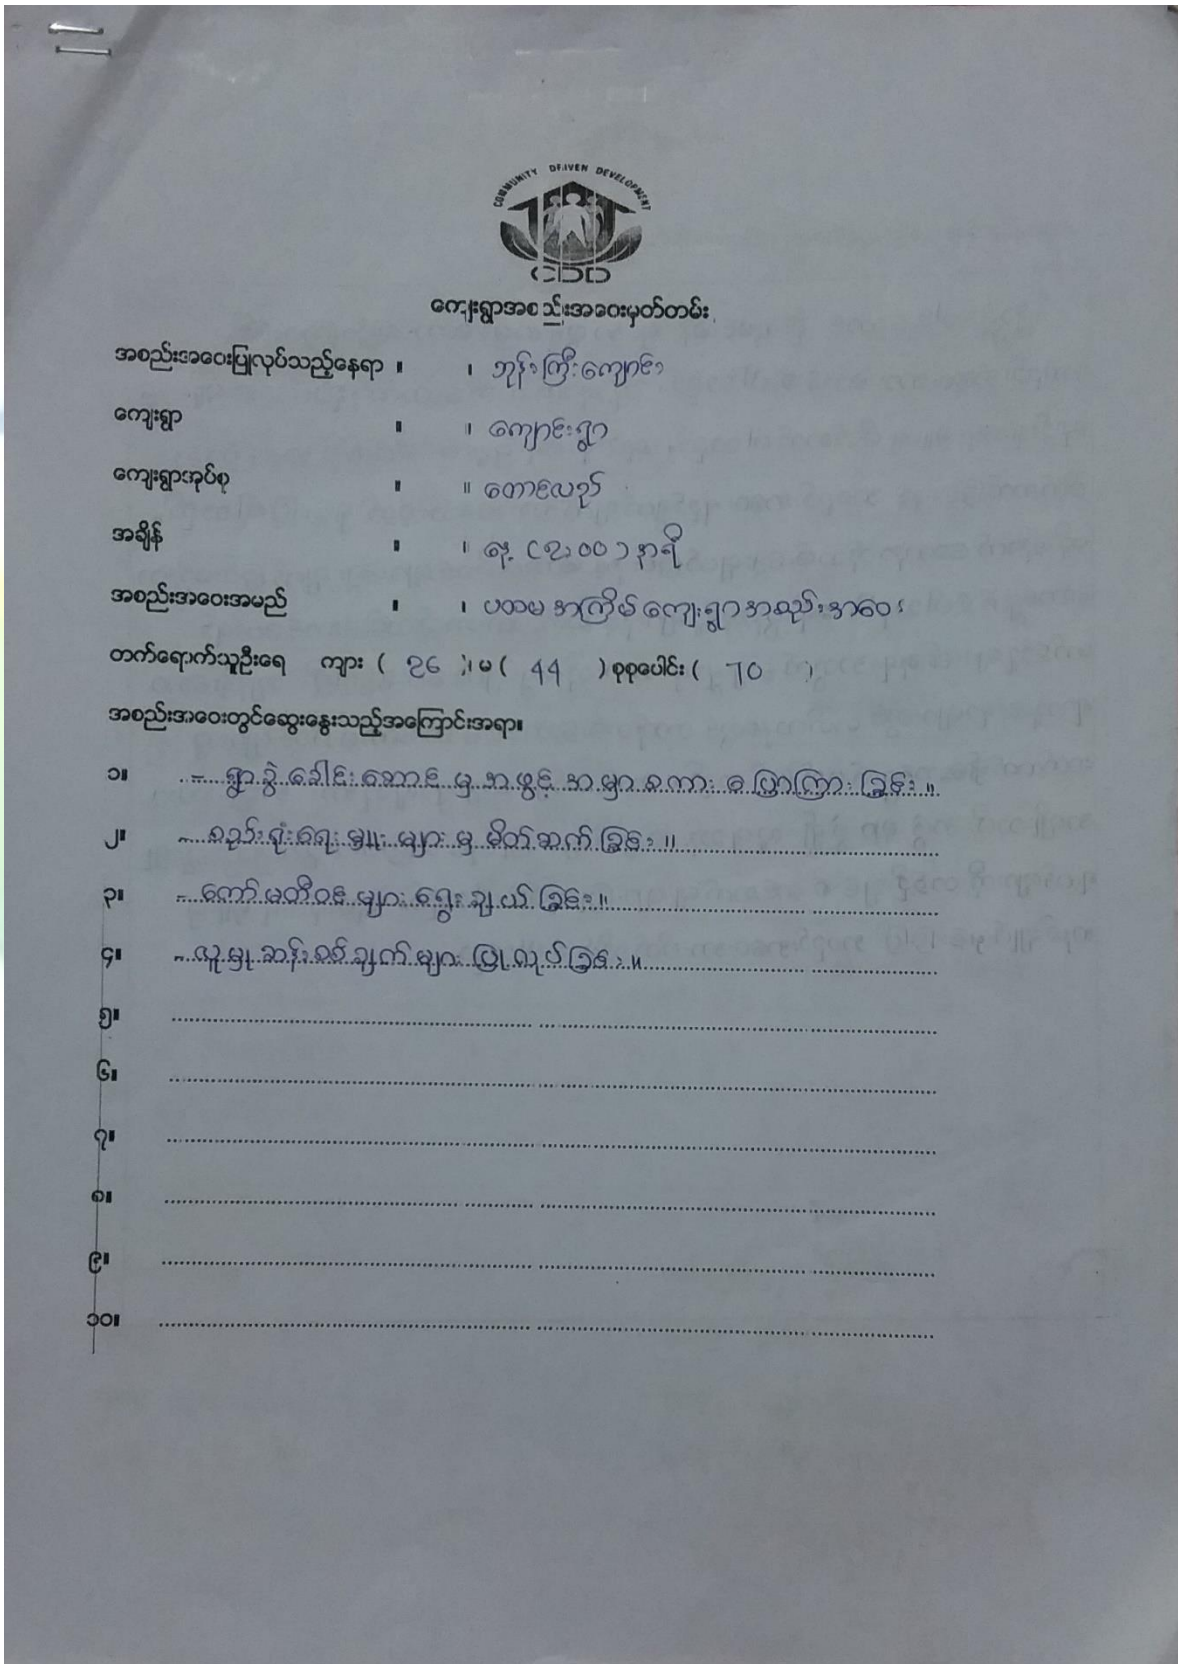 COMMUNITY DRIVEN DEVELOPMENT
CDD
ကျေးရွာအစည်းအဝေးမှတ်တမ်း
အစည်းအဝေးပြုလုပ်သည့်နေရာ ။ ။ ဘုန်းကြီးကျောင်း
ကျေးရွာ ။ ။ ကျောင်းရွာ
ကျေးရွာအုပ်စု ။ ။ တောင်လည်
အချိန် ။ ။ နေ့ (၁:၀၀) နာရီ
အစည်းအဝေးအမည် ။ ။ ပထမအကြိမ် ကျေးရွာအစည်းအဝေး
တက်ရောက်သူဦးရေ ကျား ( 26 )၊ မ ( 44 ) စုစုပေါင်း ( 70 )
အစည်းအဝေးတွင်ဆွေးနွေးသည့်အကြောင်းအရာ။
၁။ - ရွာခွဲခေါင်းဆောင်မှ အဖွင့်အမှာစကားပြောကြားခြင်း။
၂။ - စည်းရုံးရေးမှူးများမှ မိတ်ဆက်ခြင်း။
၃။ - ကော်မတီဝင်များရွေးချယ်ခြင်း။
၄။ - လူမှုဆန်းစစ်ချက်များပြုလုပ်ခြင်း။
၅။
၆။
၇။
၈။
၉။
၁၀။